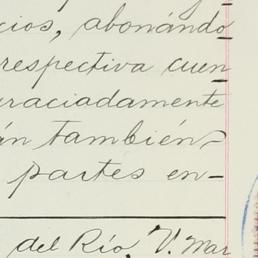 cios, abonándo
respectiva cuen
graciadamente
án también
partes en-
del Río, V. Mar